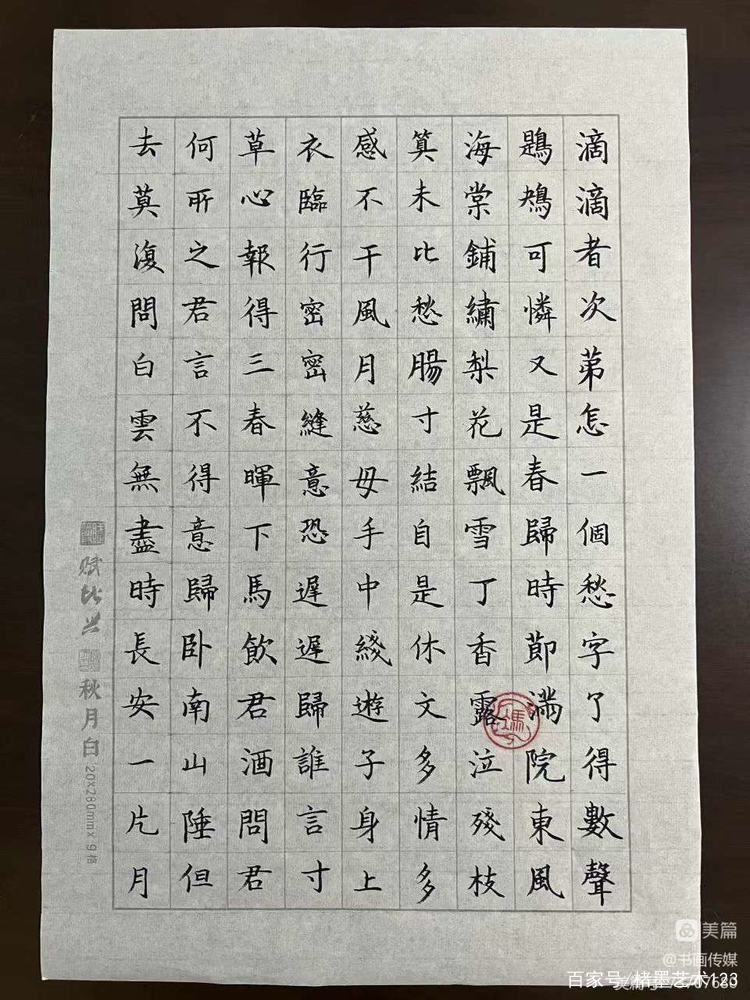 滴滴者次苐怎一個愁字了得數聲
鶗鴂可憐又是春歸時節滿院東風
海棠鋪繡梨花飄雪丁香露泣殘枝
算未比愁腸寸結自是休文多情多
感不干風月慈母手中綫遊子身上
衣臨行密密縫意恐遲遲歸誰言寸
草心報得三春暉下馬飲君酒問君
何所之君言不得意歸卧南山陲但
去莫復問白雲無盡時長安一片月
秋月白 20×280mm× 9格
美篇
@书画传媒
百家号/楮墨艺术123